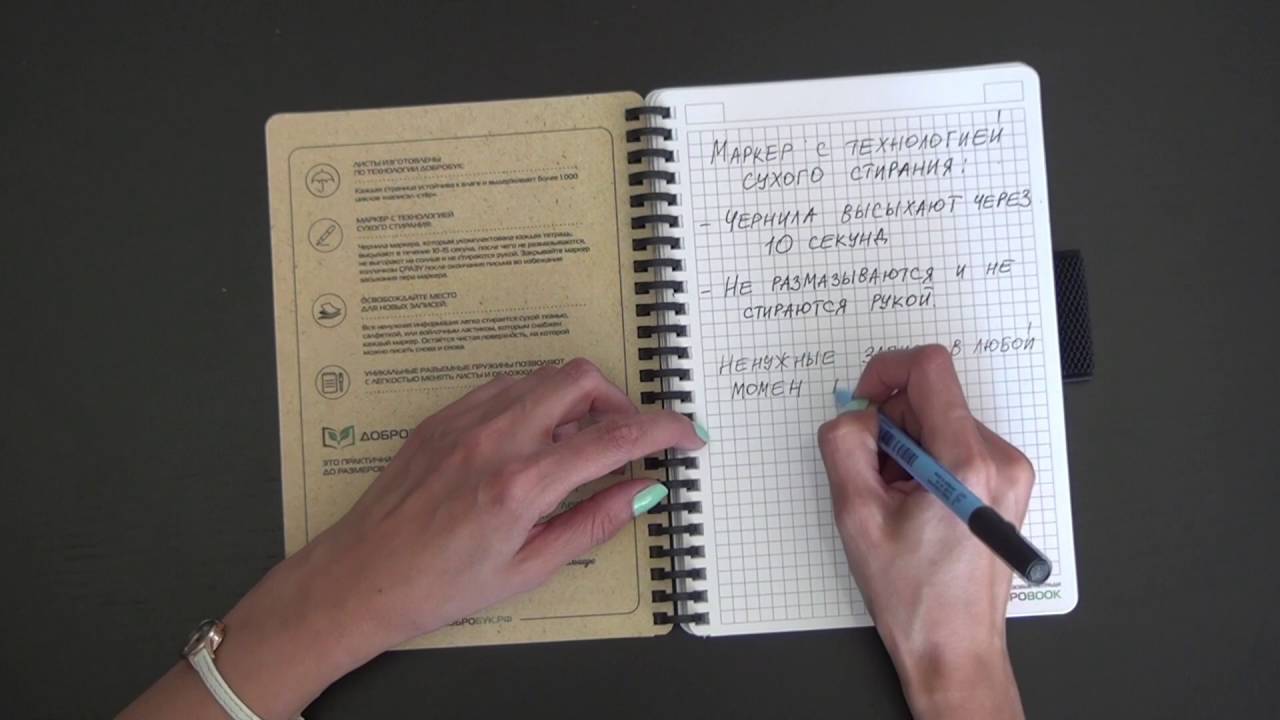 ЛИСТЫ ИЗГОТОВЛЕНЫ
ПО ТЕХНОЛОГИИ ДОБРОБУК:
Каждая страница устойчива к влаге и выдерживает более 1000
циклов «написал-стёр».
МАРКЕР С ТЕХНОЛОГИЕЙ
СУХОГО СТИРАНИЯ:
Чернила маркера, которым укомплектована каждая тетрадь,
высыхают в течение 10-15 секунд, после чего не размазываются,
не выгорают на солнце и не стираются рукой. Закрывайте маркер
колпачком СРАЗУ после окончания письма во избежание
засыхания пера маркера.
ОСВОБОЖДАЙТЕ МЕСТО
ДЛЯ НОВЫХ ЗАПИСЕЙ:
Вся ненужная информация легко стирается сухой тканью,
салфеткой, или войлочным ластиком, которым снабжен
каждый маркер. Остаётся чистая поверхность, на которой
можно писать снова и снова.
УНИКАЛЬНЫЕ РАЗЪЕМНЫЕ ПРУЖИНЫ ПОЗВОЛЯЮТ
С ЛЕГКОСТЬЮ МЕНЯТЬ ЛИСТЫ И ОБЛОЖКИ
ДОБРО
ЭТО
ДО РАЗМЕРОВ
ДОБРОБУК.РФ
МАРКЕР С ТЕХНОЛОГИЕЙ
СУХОГО СТИРАНИЯ:
- ЧЕРНИЛА ВЫСЫХАЮТ ЧЕРЕЗ
10 СЕКУНД
- НЕ РАЗМАЗЫВАЮТСЯ И НЕ
СТИРАЮТСЯ РУКОЙ
НЕНУЖНЫЕ В ЛЮБОЙ
МОМЕН
ТЕТРАДИ
ROBOOK